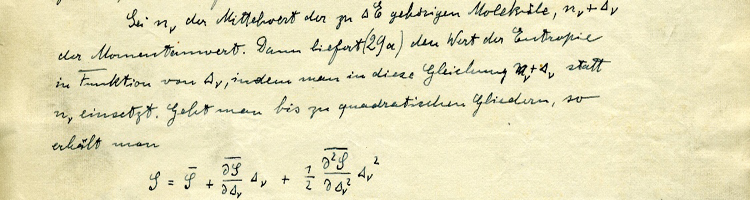 Sei n_ν der Mittelwert der zu ΔE gehörigen Moleküle, n_ν + Δ_ν
der Momentanwert. Dann liefert (29a) den Wert der Entropie
in Funktion von Δ_ν, indem man in diese Gleichung n_ν + Δ_ν statt
n_ν einsetzt. Geht man bis zu quadratischen Gliedern, so
erhält man
S = S̅ + \overline{∂S/∂Δ_ν} Δ_ν + 1/2 \overline{∂²S/∂Δ_ν²} Δ_ν²